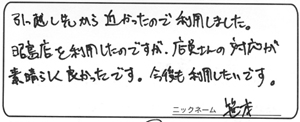 引っ越し先から近かったので利用しました。
昭島店を利用したのですが、店員さんの対応が
素晴らしく良かったです。今後も利用したいです。
ニックネーム